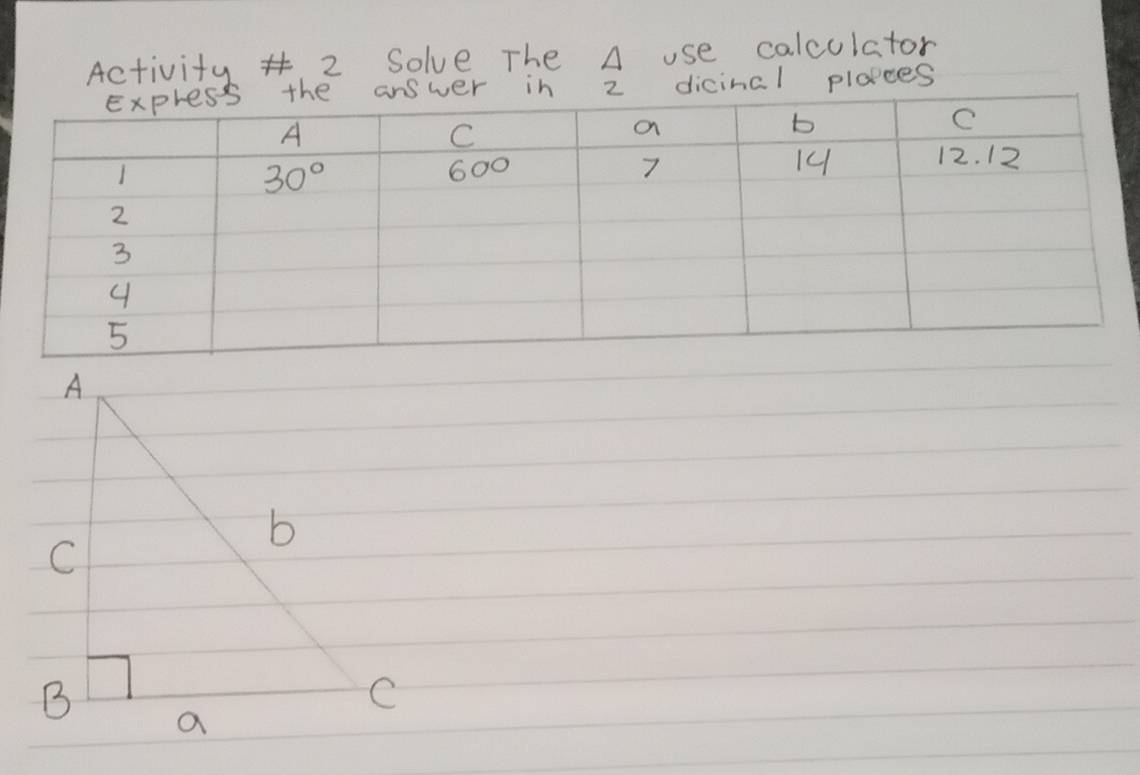 Activity # 2 Solve The Δ use calculator
Express the answer in 2 dicinal places
A C a b C
1 30° 60° 7 14 12.12
2
3
4
5
A
b
C
B C
a